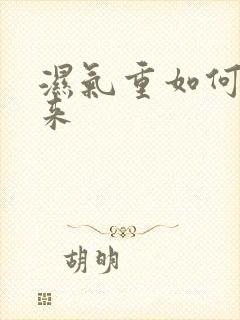 濕氣重如何
来
胡明